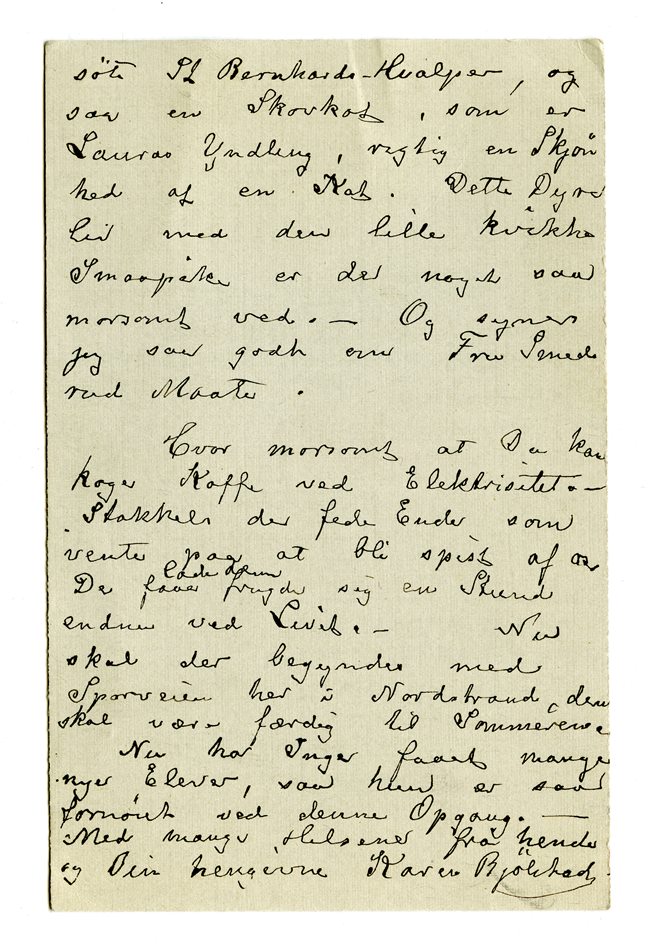 söte St Bernhards-Hvalper, og
saa en Skovkat, som er
Lauras Yndling, rigtig en Skjøn
hed af en Kat. Dette Dyre
liv med den lille kvikke
Smaapike er der noget saa
morsomt ved. — Og synes
jeg saa godt om Fru Smeds
rud Maate.
Hvor morsomt at Du kan
koge Kaffe ved Elektrisitet. —
Stakkels de fede Ender som
venter paa at bli spist af os
De faar lade dem fryde sig en Stund
endnu ved Livet. — Nu
skal der begyndes med
Sporveien her i Nordstrand, den
skal være færdig til Sommeren.
Nu har Inger faaet mange
nye Elever, saa hun er saa
fornöiet ved denne Opgang. —
Med mange Hilsener fra hende
og Din hengivne Karen Bjölstad.